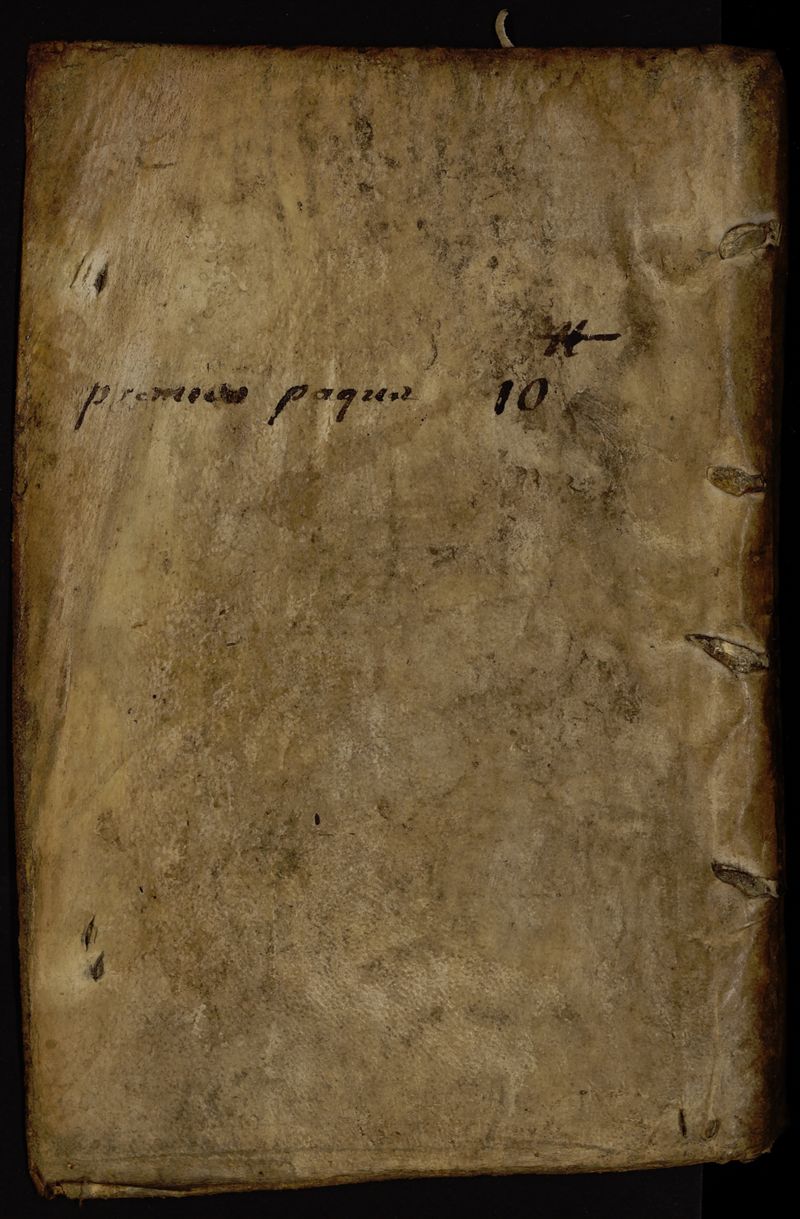 premier paquet 10
10